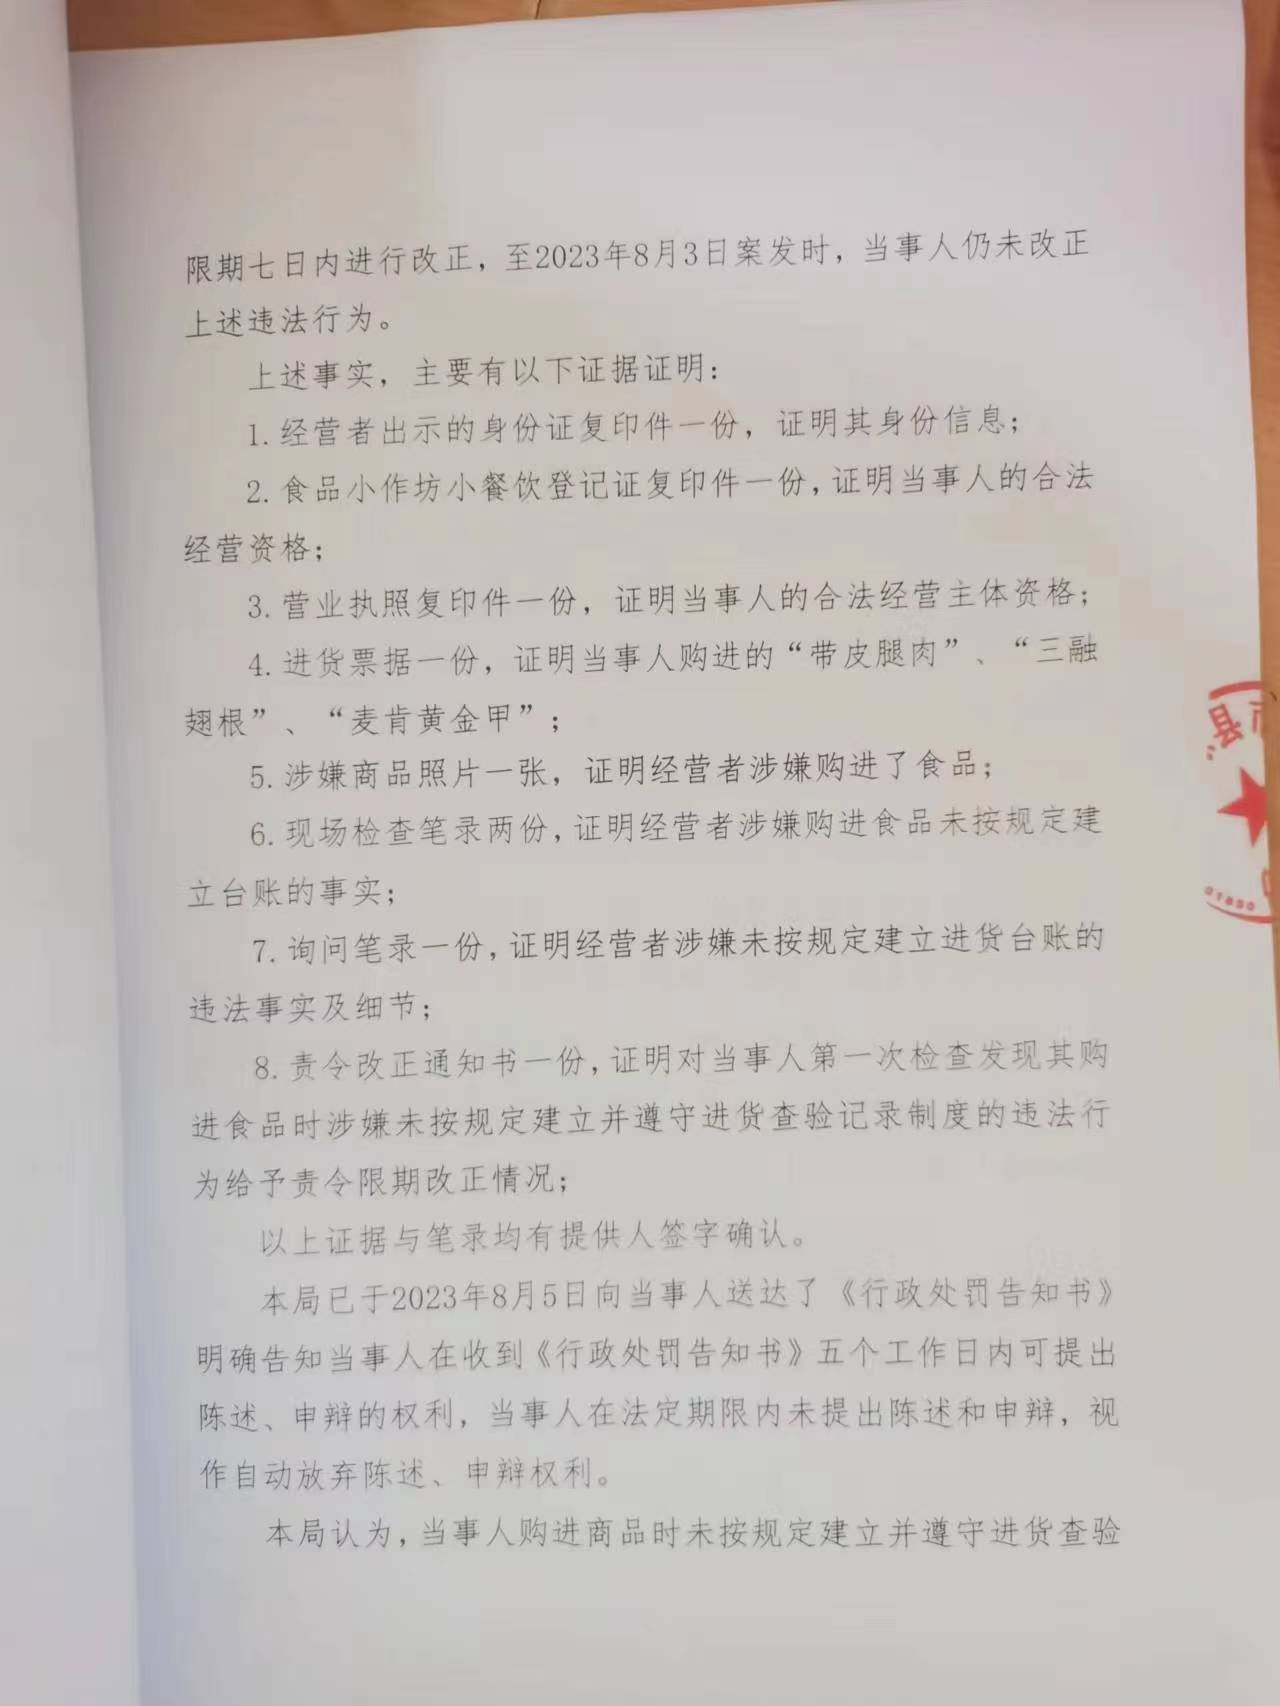 限期七日内进行改正，至2023年8月3日案发时，当事人仍未改正
上述违法行为。
上述事实，主要有以下证据证明：
1.经营者出示的身份证复印件一份，证明其身份信息；
2.食品小作坊小餐饮登记证复印件一份，证明当事人的合法
经营资格；
3.营业执照复印件一份，证明当事人的合法经营主体资格；
4.进货票据一份，证明当事人购进的“带皮腿肉”、“三融
翅根”、“麦肯黄金甲”；
5.涉嫌商品照片一张，证明经营者涉嫌购进了食品；
6.现场检查笔录两份，证明经营者涉嫌购进食品未按规定建
立台账的事实；
7.询问笔录一份，证明经营者涉嫌未按规定建立进货台账的
违法事实及细节；
8.责令改正通知书一份，证明对当事人第一次检查发现其购
进食品时涉嫌未按规定建立并遵守进货查验记录制度的违法行
为给予责令限期改正情况；
以上证据与笔录均有提供人签字确认。
本局已于2023年8月5日向当事人送达了《行政处罚告知书》
明确告知当事人在收到《行政处罚告知书》五个工作日内可提出
陈述、申辩的权利，当事人在法定期限内未提出陈述和申辩，视
作自动放弃陈述、申辩权利。
本局认为，当事人购进商品时未按规定建立并遵守进货查验
县市
01800